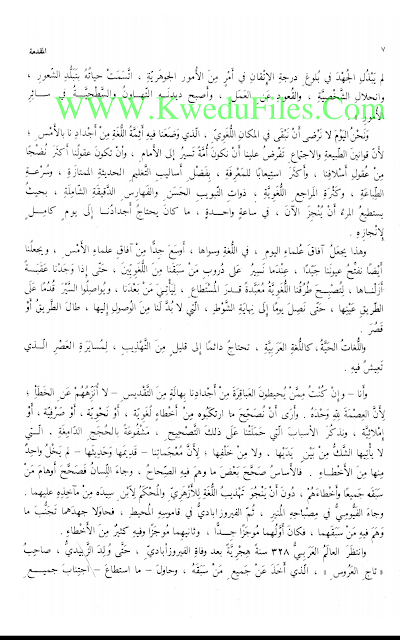 المقدمة
٧
لم يَبْذُلِ الجُهْدَ في بُلوغِ درجةِ الإتْقانِ في أَمْرٍ مِنَ الأُمورِ الجَوهَريّةِ ، اتَّسَمَتْ حياتُهُ بتَبَلُّدِ الشُّعورِ ،
وانحلالِ الشَّخصيّةِ ، والقُعودِ عَنِ العَمَلِ ، وأصبحَ ديدنُه التّهاونُ والسَّطْحيّةُ في سائرِ
الأُمورِ .
www.KweduFiles.Com
ونَحْنُ اليَوْمَ لا نَرْضى أنْ نَبْقى في المكانِ اللُّغَوِيِّ ، الّذي وَضَعَنا فيهِ أئِمّةُ اللُّغَةِ مِنْ أَجْدادِنا بالأَمْسِ ؛
لأنّ قوانينَ الطّبيعةِ والاجتِماعِ تَفْرِضُ علينا أنْ نكونَ أُمّةً تَسيرُ إلى الأمامِ ، وأنْ تكونَ عقولُنا أكثَرَ نُضْجًا
مِنْ عُقولِ أسْلافِنا ، وأكثَرَ استيعابًا للمَعْرِفةِ ، بفَضْلِ أساليبِ التَّعليمِ الحديثةِ الممتازةِ ، وسُرْعةِ
الطِّباعَةِ ، وكَثْرةِ المراجعِ اللُّغَوِيّةِ ، ذواتِ التَّبويبِ الحَسَنِ والفهارِسِ الدَّقيقةِ الشّامِلةِ ، بحيثُ
يستطيعُ المرءُ أنْ يُنْجِزَ الآنَ ، في ساعةٍ واحدةٍ ، ما كانَ يحتاجُ أجدادُنا إلى يومٍ كامِلٍ
لإنْجازِهِ .
وهذا يجعلُ آفاقَ عُلماءِ اليومِ ، في اللُّغةِ وسواها ، أوسَعَ جِدًّا مِنْ آفاقِ علماءِ الأمْسِ ، ويجعلُنا
أيضًا نفتّحُ عيونَنا جَيِّدًا ، عِنْدَما نَسيرُ على دُروبِ مَنْ سَبَقَنا مِنَ اللُّغَويّينَ ، حتّى إذا وَجَدْنا عَقَبَةً
أزَلْناها ، لِتُصبِحَ طُرُقُنا اللُّغَويّةُ مُعَبَّدةً قَدْرَ المُسْتَطاعِ ، ليأتيَ مَنْ بَعْدَنا ، ويُواصِلُوا السَّيْرَ قُدُمًا على
الطَّريقِ عَيْنِها ، حتّى نَصِلَ يومًا إلى نهايةِ الشَّوْطِ ، الّتي لا بُدَّ لَنا مِنَ الوُصولِ إليها ، طالَ الطَّريقُ أوْ
قَصُرَ .
واللُّغاتُ الحَيّةُ ، كاللُّغةِ العَرَبيّةِ ، تحتاجُ دائمًا إلى قليلٍ مِنَ التَّهْذيبِ ، لِمُسايَرةِ العَصْرِ الّذي
تَعيشُ فيهِ .
وأنا – وإنْ كُنْتُ مِمَّنْ يُحيطونَ العَباقرَةَ مِنْ أجْدادِنا بِهالةٍ مِنَ التَّقْديسِ – لا أُنَزِّهُهُمْ عَنِ الخَطَأِ ؛
لأنَّ العِصْمةَ للهِ وَحْدَهُ . وأَرَى أنْ نُصَحِّحَ ما ارتكَبوه مِنْ أخْطاءٍ لُغَوِيّةٍ ، أوْ نَحْوِيّةٍ ، أوْ صَرْفِيّةٍ ، أوْ
إمْلائيّةٍ ، ونذكُرَ الأسبابَ الّتي حَمَلَتْنا عَلى ذلكَ التَّصْحيحِ ، مَشْفوعَةً بالحُجَجِ الدّامِغةِ ، الّتي
لا يأتيها الشَّكُّ مِنْ بَيْنِ يَدَيْها ، ولا مِنْ خَلْفِها ؛ لأنَّ مُعْجَماتِنا – قديمَها وحَديثَها – لم يَخْلُ واحِدٌ
منها مِنَ الأخْطاءِ . فالأساسُ صَحَّحَ بَعْضَ ما وهِمَ فيهِ الصِّحاحُ . وجاءَ اللِّسانُ فَصَحَّحَ أوهامَ مَنْ
سَبَقَه جَميعًا وأخْطاءَهُمْ ، دُونَ أنْ يَنْجُوَ تَهذيبُ اللُّغَةِ للأَزْهَرِيِّ والمُحْكَمُ لابْنِ سيدَه مِنْ مآخِذِهِ عليهِما .
وجاءَ الفَيُّومِيُّ في مِصْباحِهِ المُنيرِ ، ثُمَّ الفيروزاباديُّ في قاموسِهِ المحيطِ ، فحاوَلا جهدَهما تَجَنُّبَ ما
وهِمَ فيهِ مَنْ سَبَقَهما ، فكانَ أوَّلُهما مُوجَزًا جِدًّا ، وثانيهما مُوجَزًا وفيهِ كثيرٌ مِنَ الأخْطاءِ .
وانتظَرَ العالَمُ العَرَبيُّ ٣٢٨ سنةً هِجْرِيّةً بعدَ وفاةِ الفيروزأباديِّ ، حتّى وُلِدَ الزَّبيديُّ ، صاحِبُ
« تاجِ العَرُوسِ » ، الّذي أخَذَ عَنْ جَميعِ مَنْ سَبَقَهُ ، وحاولَ – ما استطاعَ – اجتِنابَ جميعِ